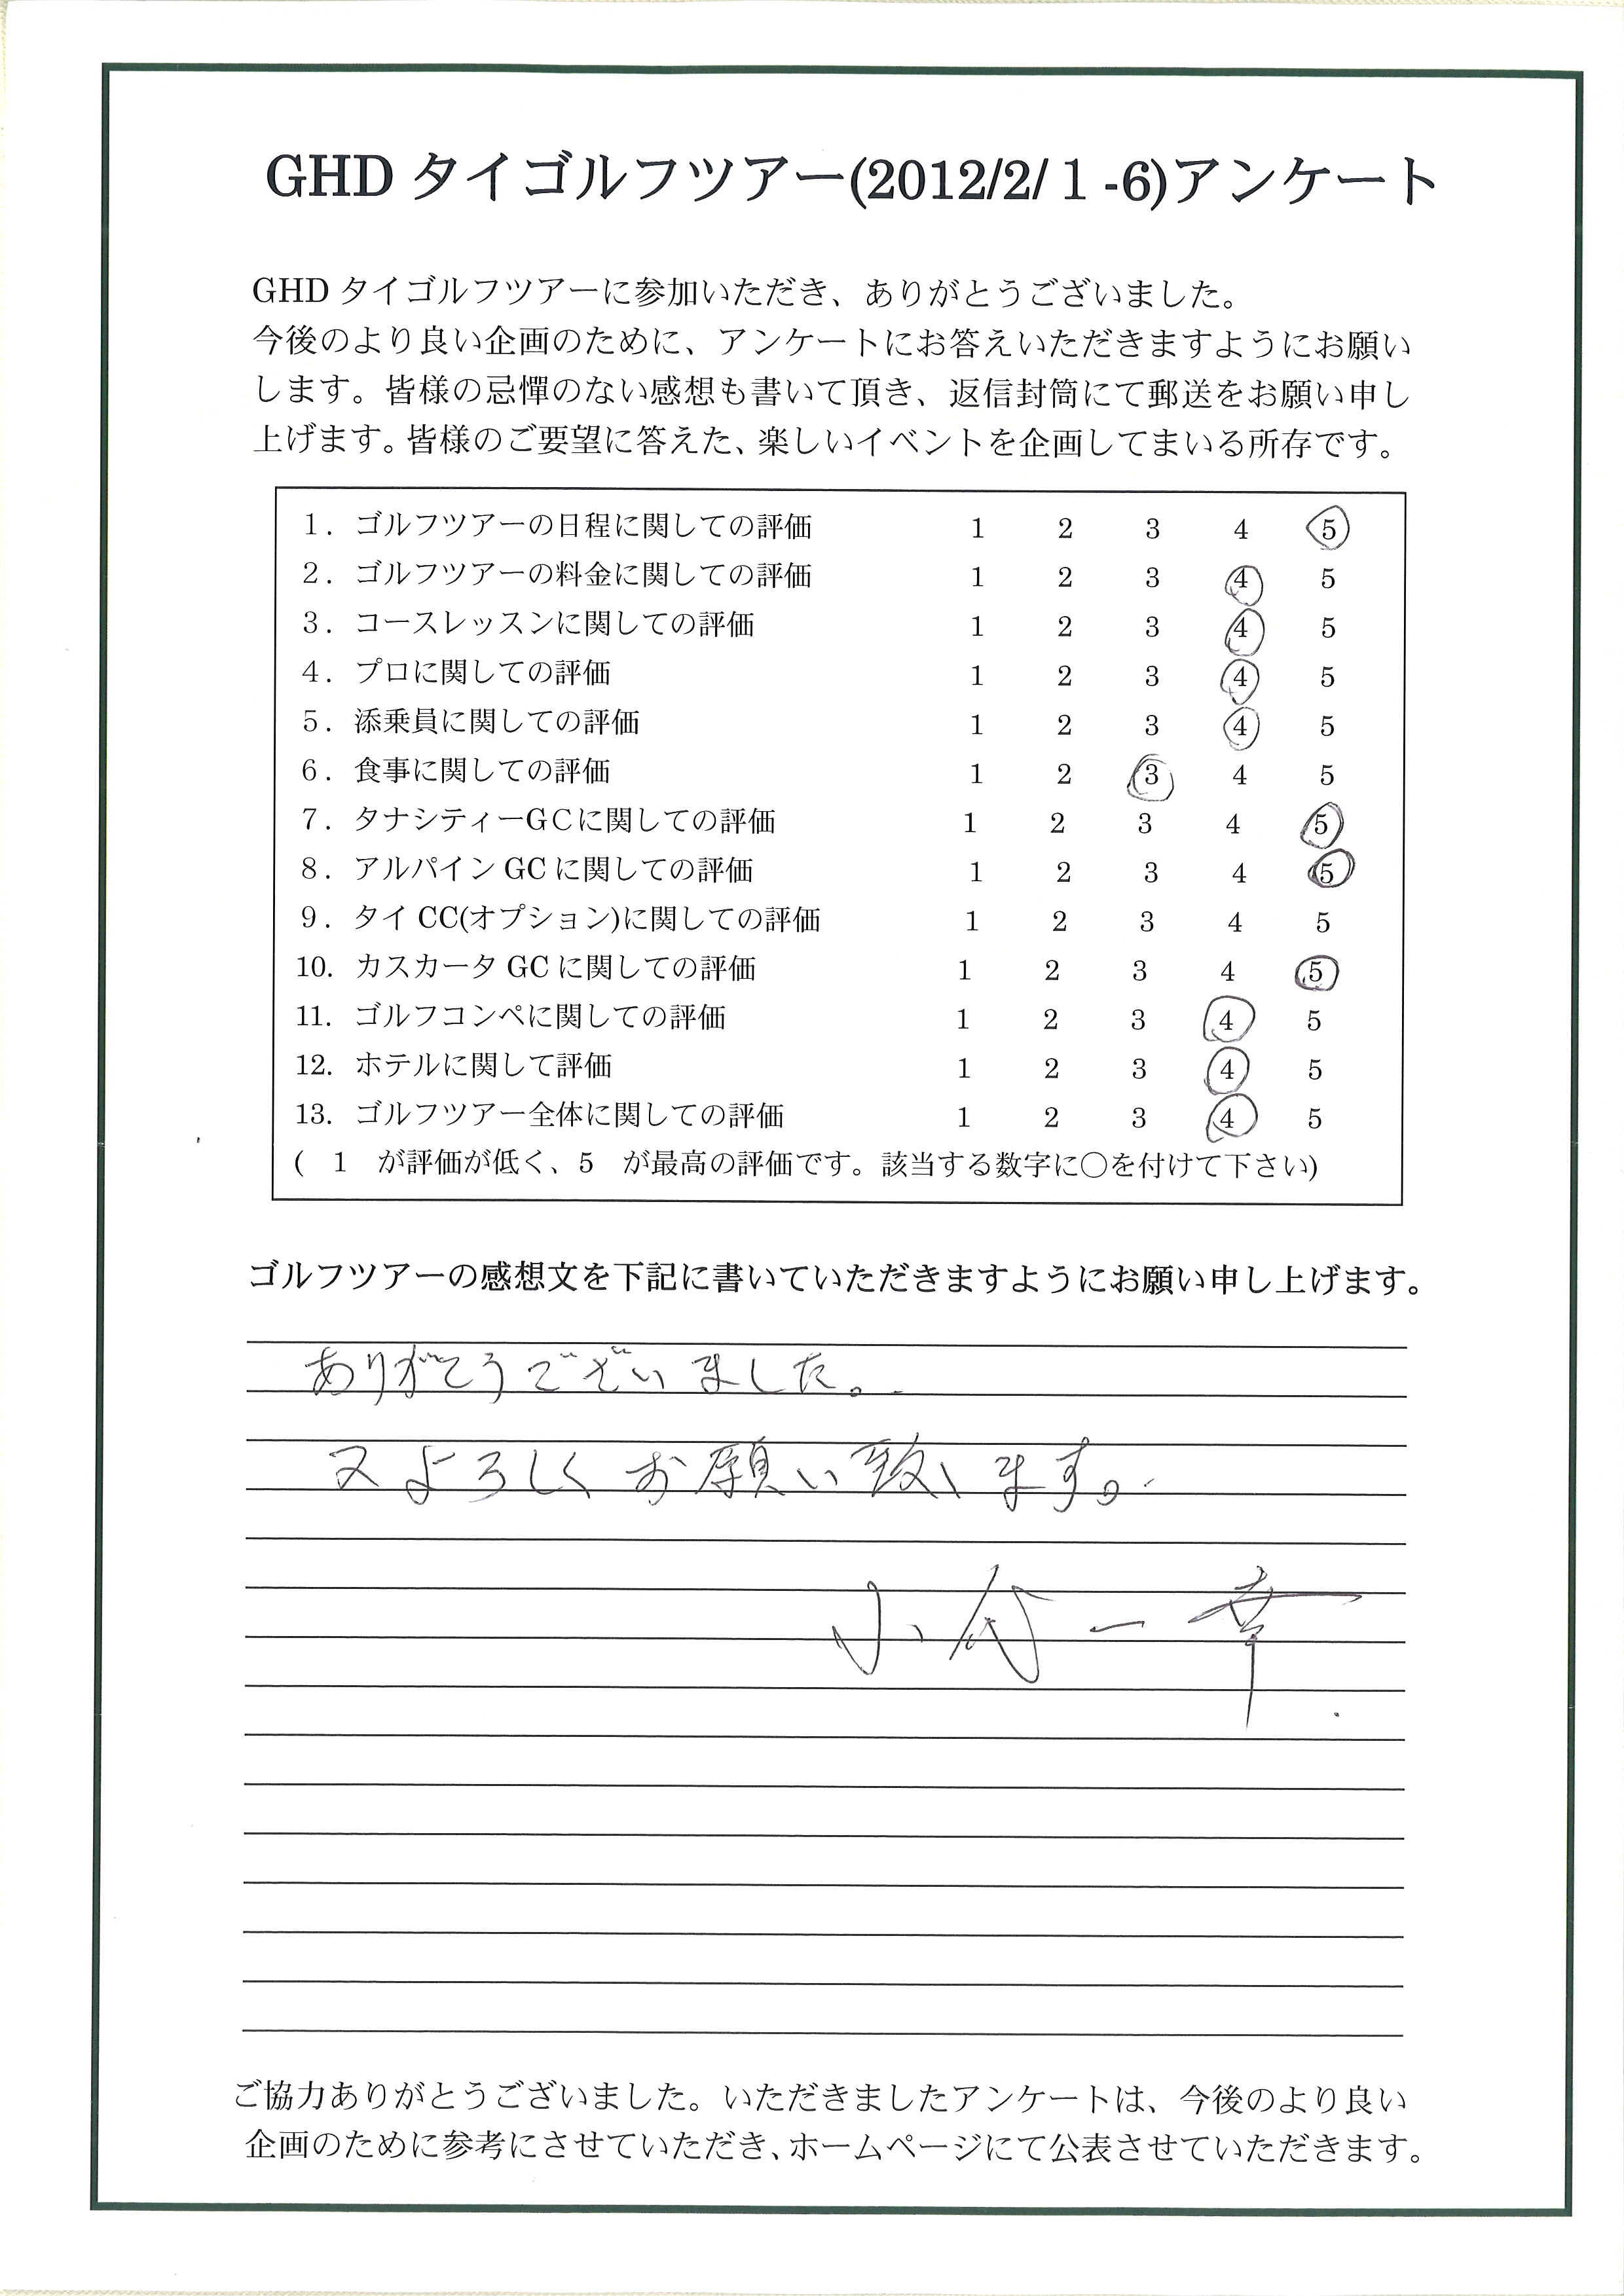 GHD タイゴルフツアー(2012/2/１-6)アンケート
GHD タイゴルフツアーに参加いただき、ありがとうございました。
今後のより良い企画のために、アンケートにお答えいただきますようにお願い
します。皆様の忌憚のない感想も書いて頂き、返信封筒にて郵送をお願い申し
上げます。皆様のご要望に答えた、楽しいイベントを企画してまいる所存です。
１．ゴルフツアーの日程に関しての評価 1 2 3 4 5
２．ゴルフツアーの料金に関しての評価 1 2 3 4 5
３．コースレッスンに関しての評価 1 2 3 4 5
４．プロに関しての評価 1 2 3 4 5
５．添乗員に関しての評価 1 2 3 4 5
６．食事に関しての評価 1 2 3 4 5
７．タナシティーＧＣに関しての評価 1 2 3 4 5
８．アルパイン GC に関しての評価 1 2 3 4 5
９．タイ CC(オプション)に関しての評価 1 2 3 4 5
10. カスカータ GC に関しての評価 1 2 3 4 5
11. ゴルフコンペに関しての評価 1 2 3 4 5
12. ホテルに関して評価 1 2 3 4 5
13. ゴルフツアー全体に関しての評価 1 2 3 4 5
( 1 が評価が低く、5 が最高の評価です。該当する数字に○を付けて下さい)
ゴルフツアーの感想文を下記に書いていただきますようにお願い申し上げます。
ありがとうございました。
又よろしくお願い致します。
小 一幸
ご協力ありがとうございました。いただきましたアンケートは、今後のより良い
企画のために参考にさせていただき、ホームページにて公表させていただきます。